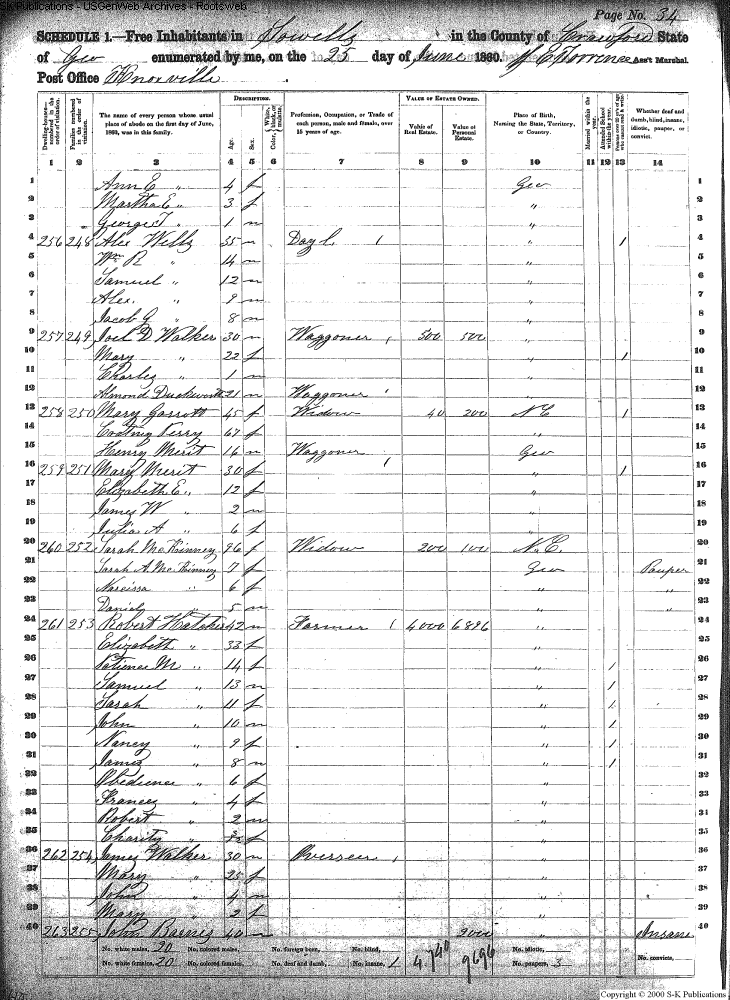 S-K Publications - USGenWeb Archives - Rootsweb
Page No. 34
SCHEDULE 1.—Free Inhabitants in Lowells in the County of Crawford State
of Geo enumerated by me, on the 25 day of June 1860. Ass't Marshal.
Post Office Knoxville
Dwelling-houses—numbered in the order of visitation.
Families numbered in the order of visitation.
The name of every person whose usual place of abode on the first day of June, 1860, was in this family.
DESCRIPTION.
Age.
Sex.
Color, White, black, or mulatto.
Profession, Occupation, or Trade of each person, male and female, over 15 years of age.
VALUE OF ESTATE OWNED.
Value of Real Estate.
Value of Personal Estate.
Place of Birth, Naming the State, Territory, or Country.
Married within the year.
Attended School within the year.
Persons over 20 y'rs of age who cannot read & write.
Whether deaf and dumb, blind, insane, idiotic, pauper, or convict.
1 2 3 4 5 6 7 8 9 10 11 12 13 14
1 Ann E " 4 f Geo 1
2 Martha E " 3 f " 2
3 George T " 1 m " 3
4 256 248 Alex Wells 35 m Day L / " / 4
5 Wm R " 14 m " 5
6 Samuel " 12 m " 6
7 Alex. " 9 m " 7
8 Jacob G " 8 m " 8
9 257 249 Joel D Walker 30 m Waggoner / 500 500 " 9
10 Mary " 22 f " / 10
11 Charles " 1 m " 11
12 Almond Duckworth 21 m Waggoner / " 12
13 258 250 Mary Garrott 45 f Widow 40 200 N C / 13
14 Perry 67 f " 14
15 Henry Merit 16 m Waggoner / Geo 15
16 259 251 Mary Merit 30 f " / 16
17 Elizabeth E " 12 f " 17
18 James W " 2 m " 18
19 Julia A " 6 f " 19
20 260 252 Sarah McKinney 96 f Widow 200 100 N.C. 20
21 Sarah A. McKinney 7 f Geo Pauper 21
22 Narcissa " 6 f " " 22
23 Daniel " 5 m " " 23
24 261 253 Robert Hatcher 42 m Farmer / 4000 6896 " 24
25 Elizabeth " 33 f " 25
26 Patience M " 14 f " / 26
27 Samuel " 13 m " / 27
28 Sarah " 11 f " / 28
29 John " 10 m " / 29
30 Nancy " 9 f " / 30
31 James " 8 m " / 31
32 Obedience " 6 f " 32
33 Frances " 4 f " 33
34 Robert " 2 m " 34
35 Charity " f " 35
36 262 254 James Walker 30 m Overseer / " 36
37 Mary " 25 f " 37
38 John " 4 m " 38
39 Mary " 2 f " 39
40 263 255 John Barnes 40 m 2000 " Insane 40
No. white males, 20 No. colored males, No. foreign born, No. blind, 4740 9696 No. idiotic,
No. white females, 20 No. colored females, No. deaf and dumb, No. insane, 1 No. paupers, 3 No. convicts,
Copyright © 2000 S-K Publications